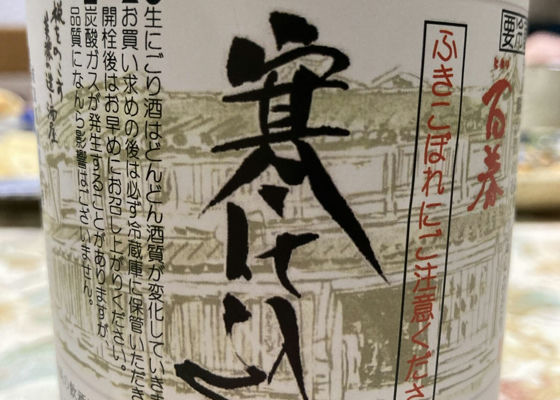 要冷
百春
ふきこぼれにご注意くださ
寒仕込
生にごり酒はどんどん酒質が変化していきま
お買い求めの後は必ず冷蔵庫に保管いただき
開栓後はお早めにお召し上がりください。
炭酸ガスが発生することがありますが、
品質になんら影響はございません。